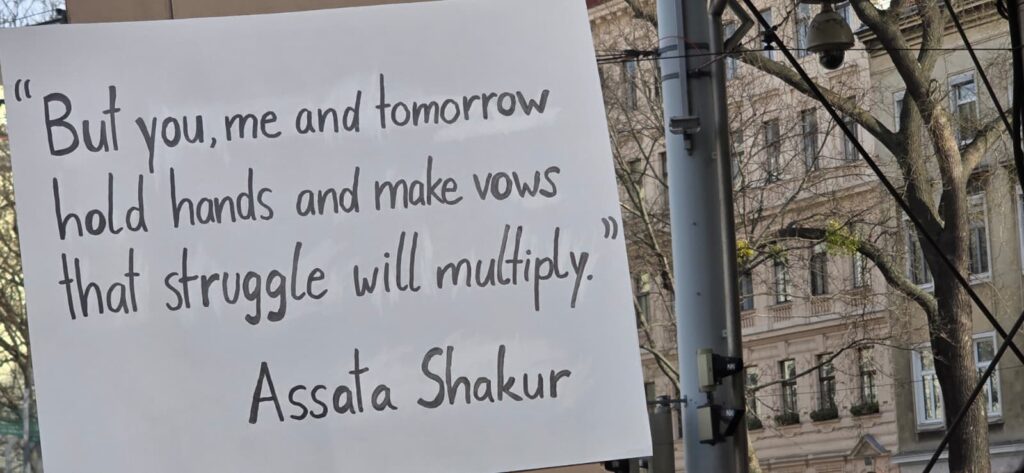 “But you, me and tomorrow
hold hands and make vows
that struggle will multiply.”
Assata Shakur